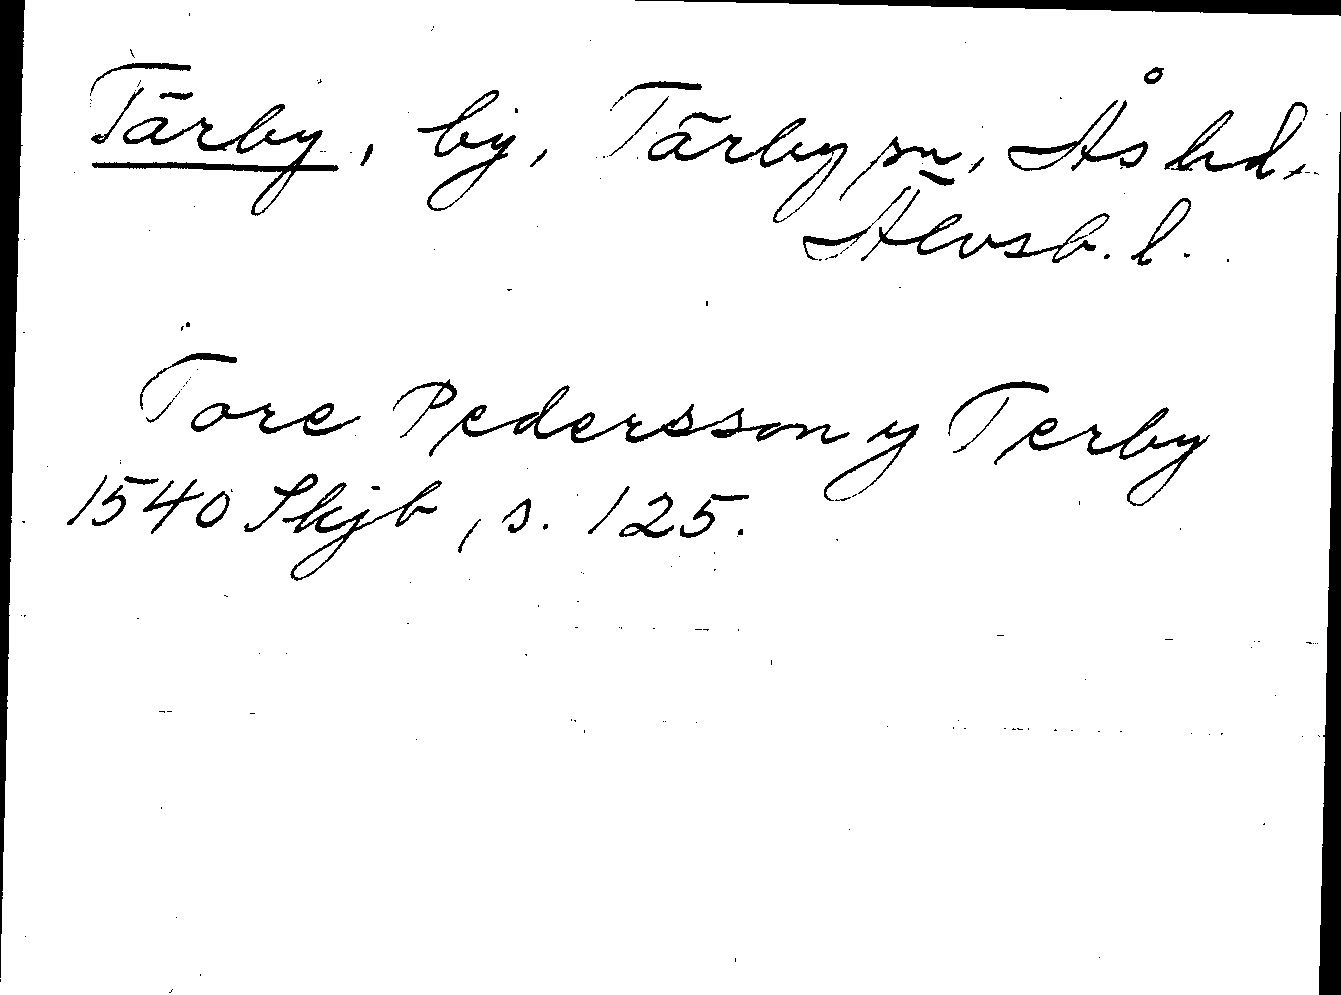 Tärby, by, Tärby sn, Ås hd,
Älvsb. l.
Tore Pedersson y Terby
1540 Skjb, s. 125.